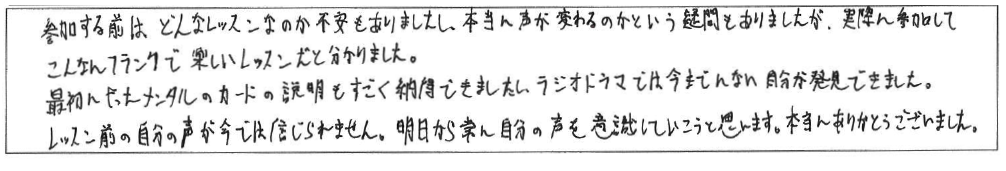 参加する前は どんなレッスンなのか不安もありましたし、本当に声が変わるのかという疑問もありましたが、実際に参加して
こんなにフランクで楽しいレッスンだと分かりました。
最初にやったメンタルのカードの説明もすごく納得できましたし、ラジオドラマでは今までにない自分が発見できました。
レッスン前の自分の声が今では信じられません。明日から常に自分の声を意識していこうと思います。本当にありがとうございました。